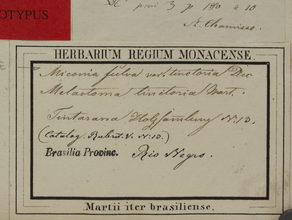 OTYPUS
DC. prod 3 p. 180 n 10
A. Chamisso
HERBARIUM REGIUM MONACENSE.
Miconia fulva var. tinctoria Dec
Melastoma tinctoria Mart.
Tintarana Holzsamlung N. 10.
(Catalog. N. 10.)
Brasilia Provinc. Rio Negro.
Martii iter brasiliense.